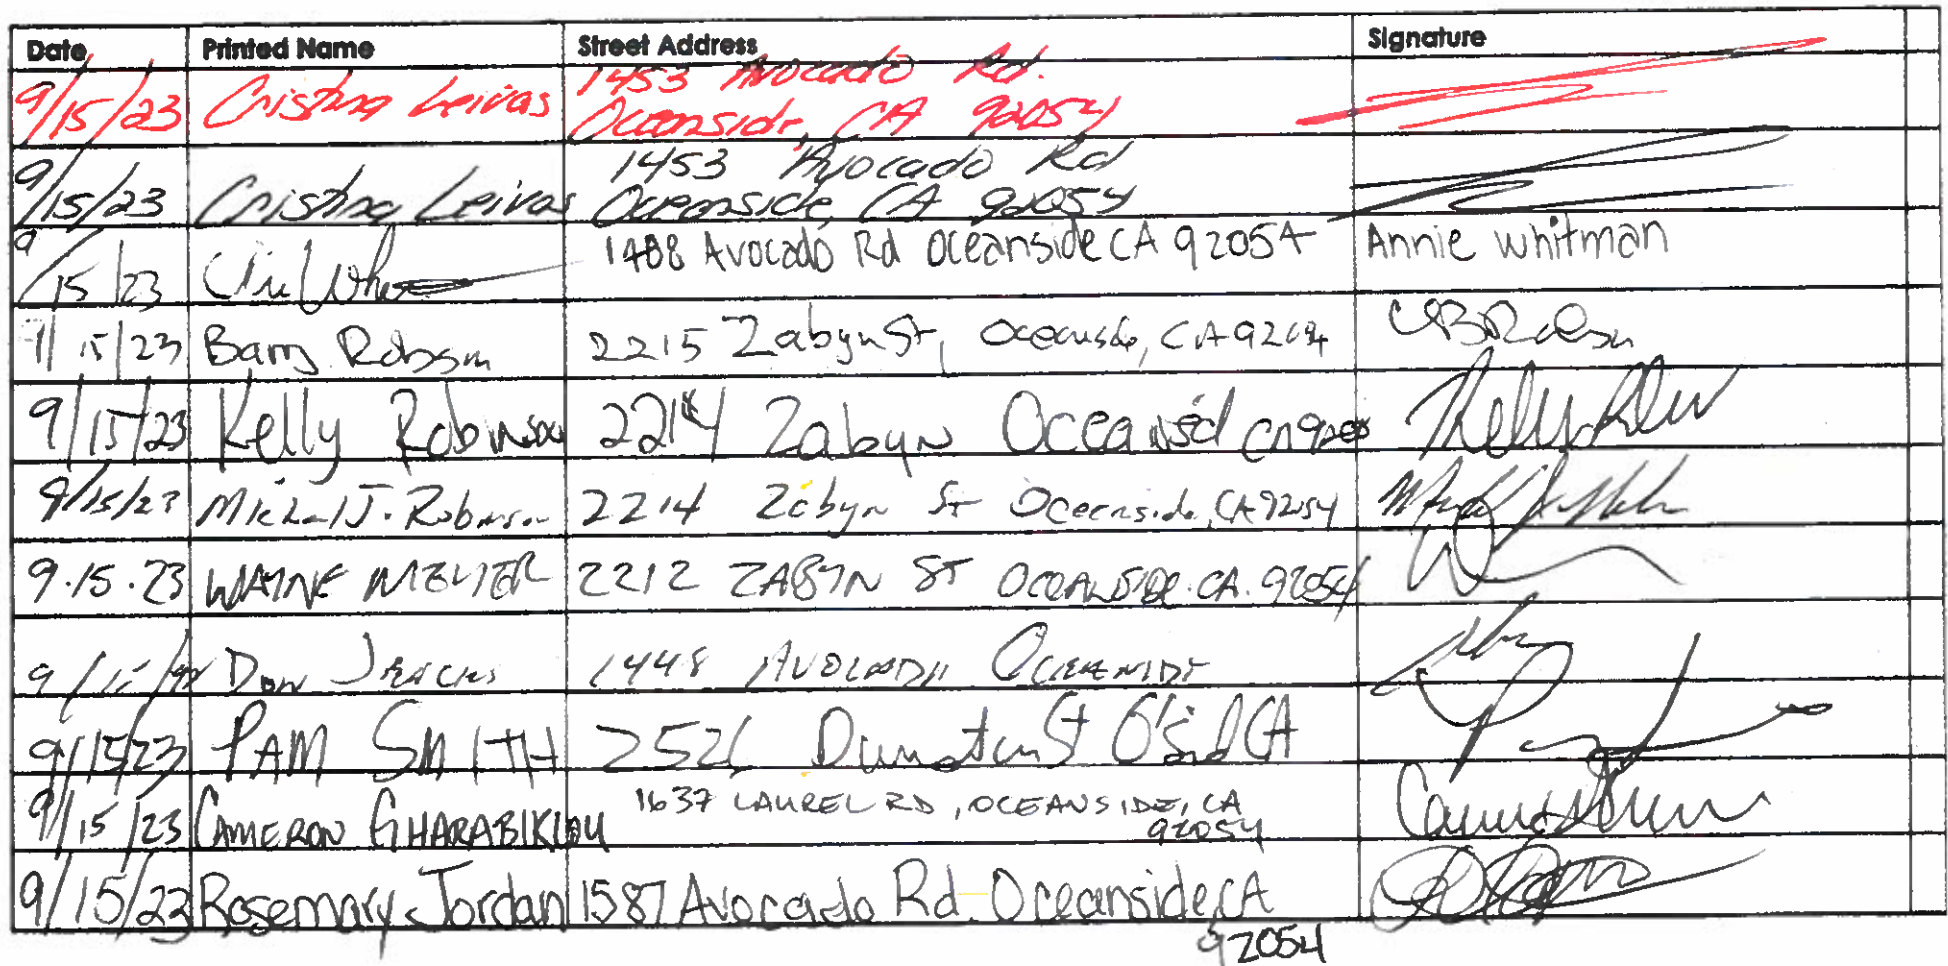 Date Printed Name Street Address Signature
9/15/23 Cristina Leivas 1453 Avocado Rd.
Oceanside, CA 92054
9/15/23 Cristina Leivas 1453 Avocado Rd
Oceanside, CA 92054
9/15/23 1488 Avocado Rd Oceanside CA 92054 Annie Whitman
9/15/23 Barry Robson 2215 Zabyn St, Oceanside, CA 92054
9/15/23 Kelly Robinson 2214 Zabyn Oceansid CA
9/15/23 Michael J. Robinson 2214 Zabyn St Oceanside, CA 92054
9.15.23 WAYNE 2212 ZABYN ST OCEANSIDE. CA. 92054
Don 1448 AVOCADO
9/15/23 PAM SMITH St O'Sid CA
9/15/23 CAMERON GHARABIKLOU 1637 LAUREL RD, OCEANSIDE, CA
92054
9/15/23 Rosemary Jordan 1587 Avocado Rd. Oceanside, CA
92054